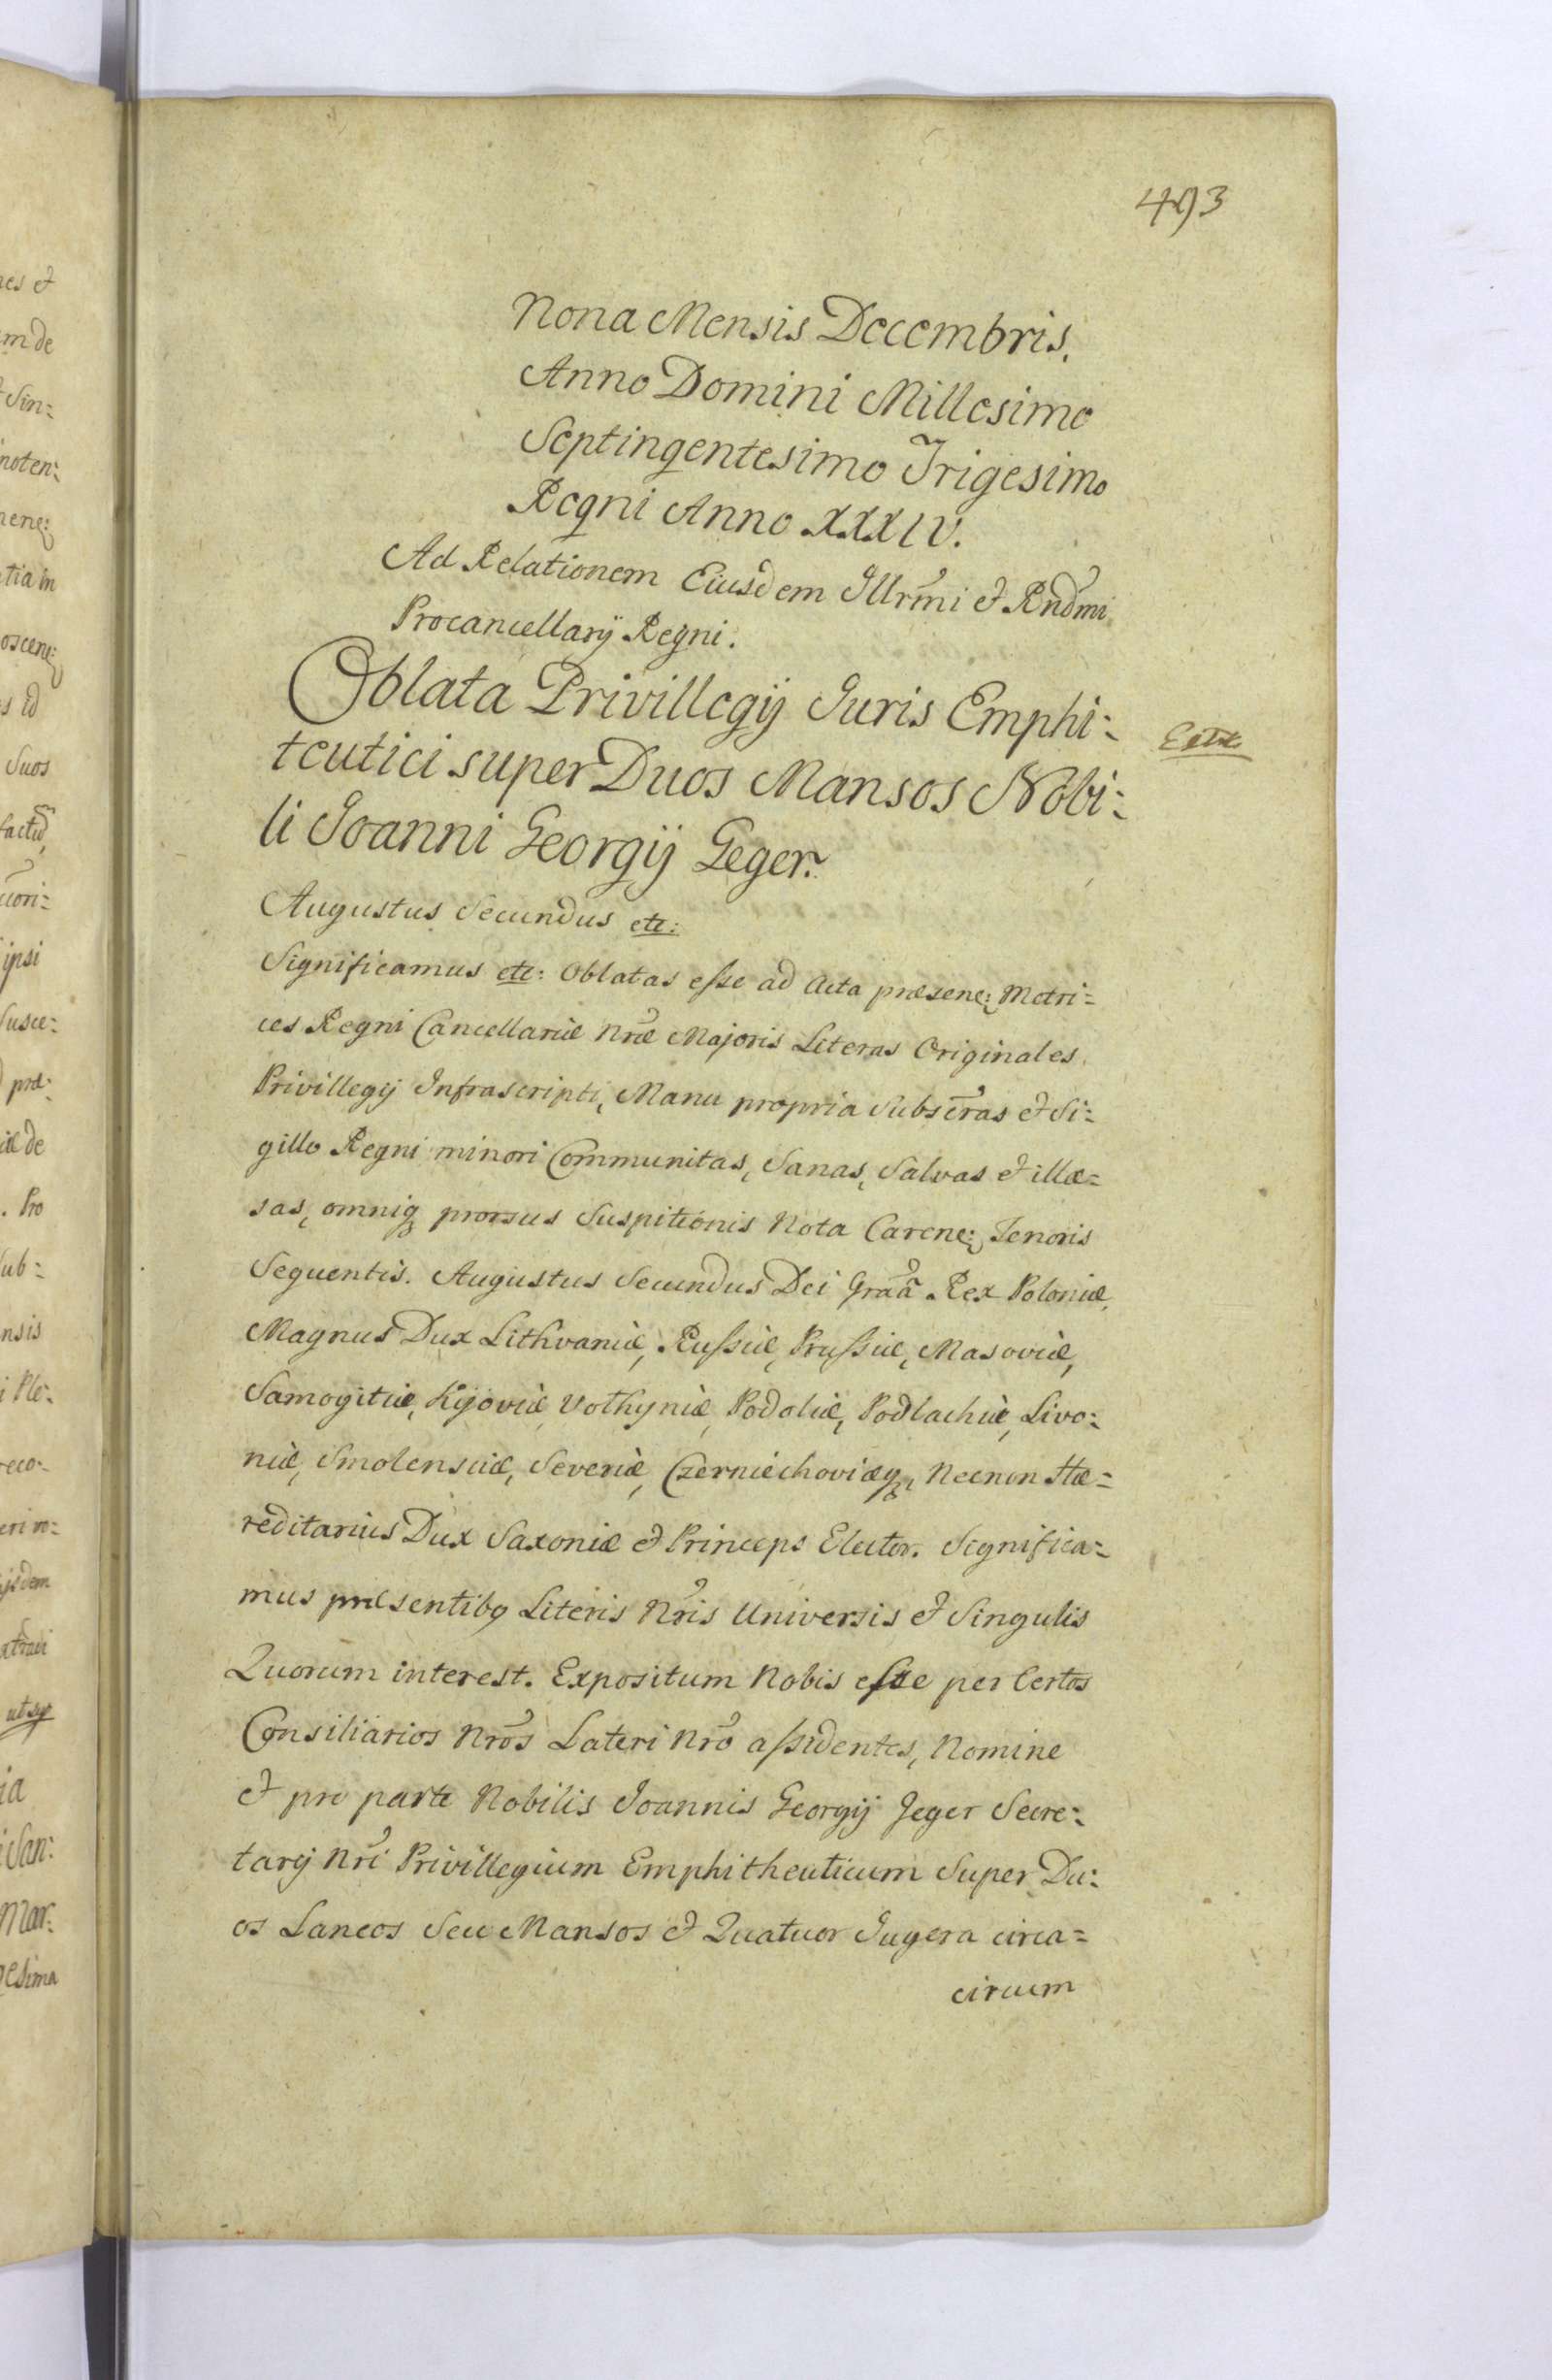 493
Nona Mensis Decembris,
Anno Domini Millesimo
Septingentesimo Trigesimo
Regni Anno XXXIV.
Ad Relationem Eiusdem Illrm̃i et Rñdmi
Procancellarÿ Regni.
Oblata Privillegÿ Iuris Emphi:
teutici super Duos Mansos Nobi:
li Joanni Georgÿ Geger.
Augustus Secundus etc:
Significamus etc: Oblatas esse ad Acta præsene: Metri=
ces Regni Cancellariæ Nræ Majoris Literas Originales
Privillegÿ Infrascripti, Manu propria Subscr̃as et Si:
gillo Regni minori Communitas, Sanas, Salvas et illæ=
sas, omniq prorsus Suspitionis Nota Carene: Tenoris
Sequentis. Augustus Secundus Dei Graã Rex Poloniæ,
Magnus Dux Lithvaniæ, Russiæ, Prussiæ, Masoviæ,
Samogitiæ, Kijoviæ, Volhyniæ, Podoliæ, Podlachiæ, Livo:
niæ, Smolensciæ, Severiæ, Czerniechoviæq, Necnon Hæ=
reditarius Dux Saxoniæ et Princeps Elector. Significa=
mus præsentibq Literis Nris Universis et Singulis
Quorum interest. Expositum Nobis esse per Certos
Consiliarios Nrõs Lateri Nrõ assidentes, Nomine
et pro parte Nobilis Joannis Georgÿ Jeger Secre:
tarÿ Nrĩ Privillegium Emphitheuticum Super Du:
os Laneos Seu Mansos et Quatuor Jugera circa=
circum